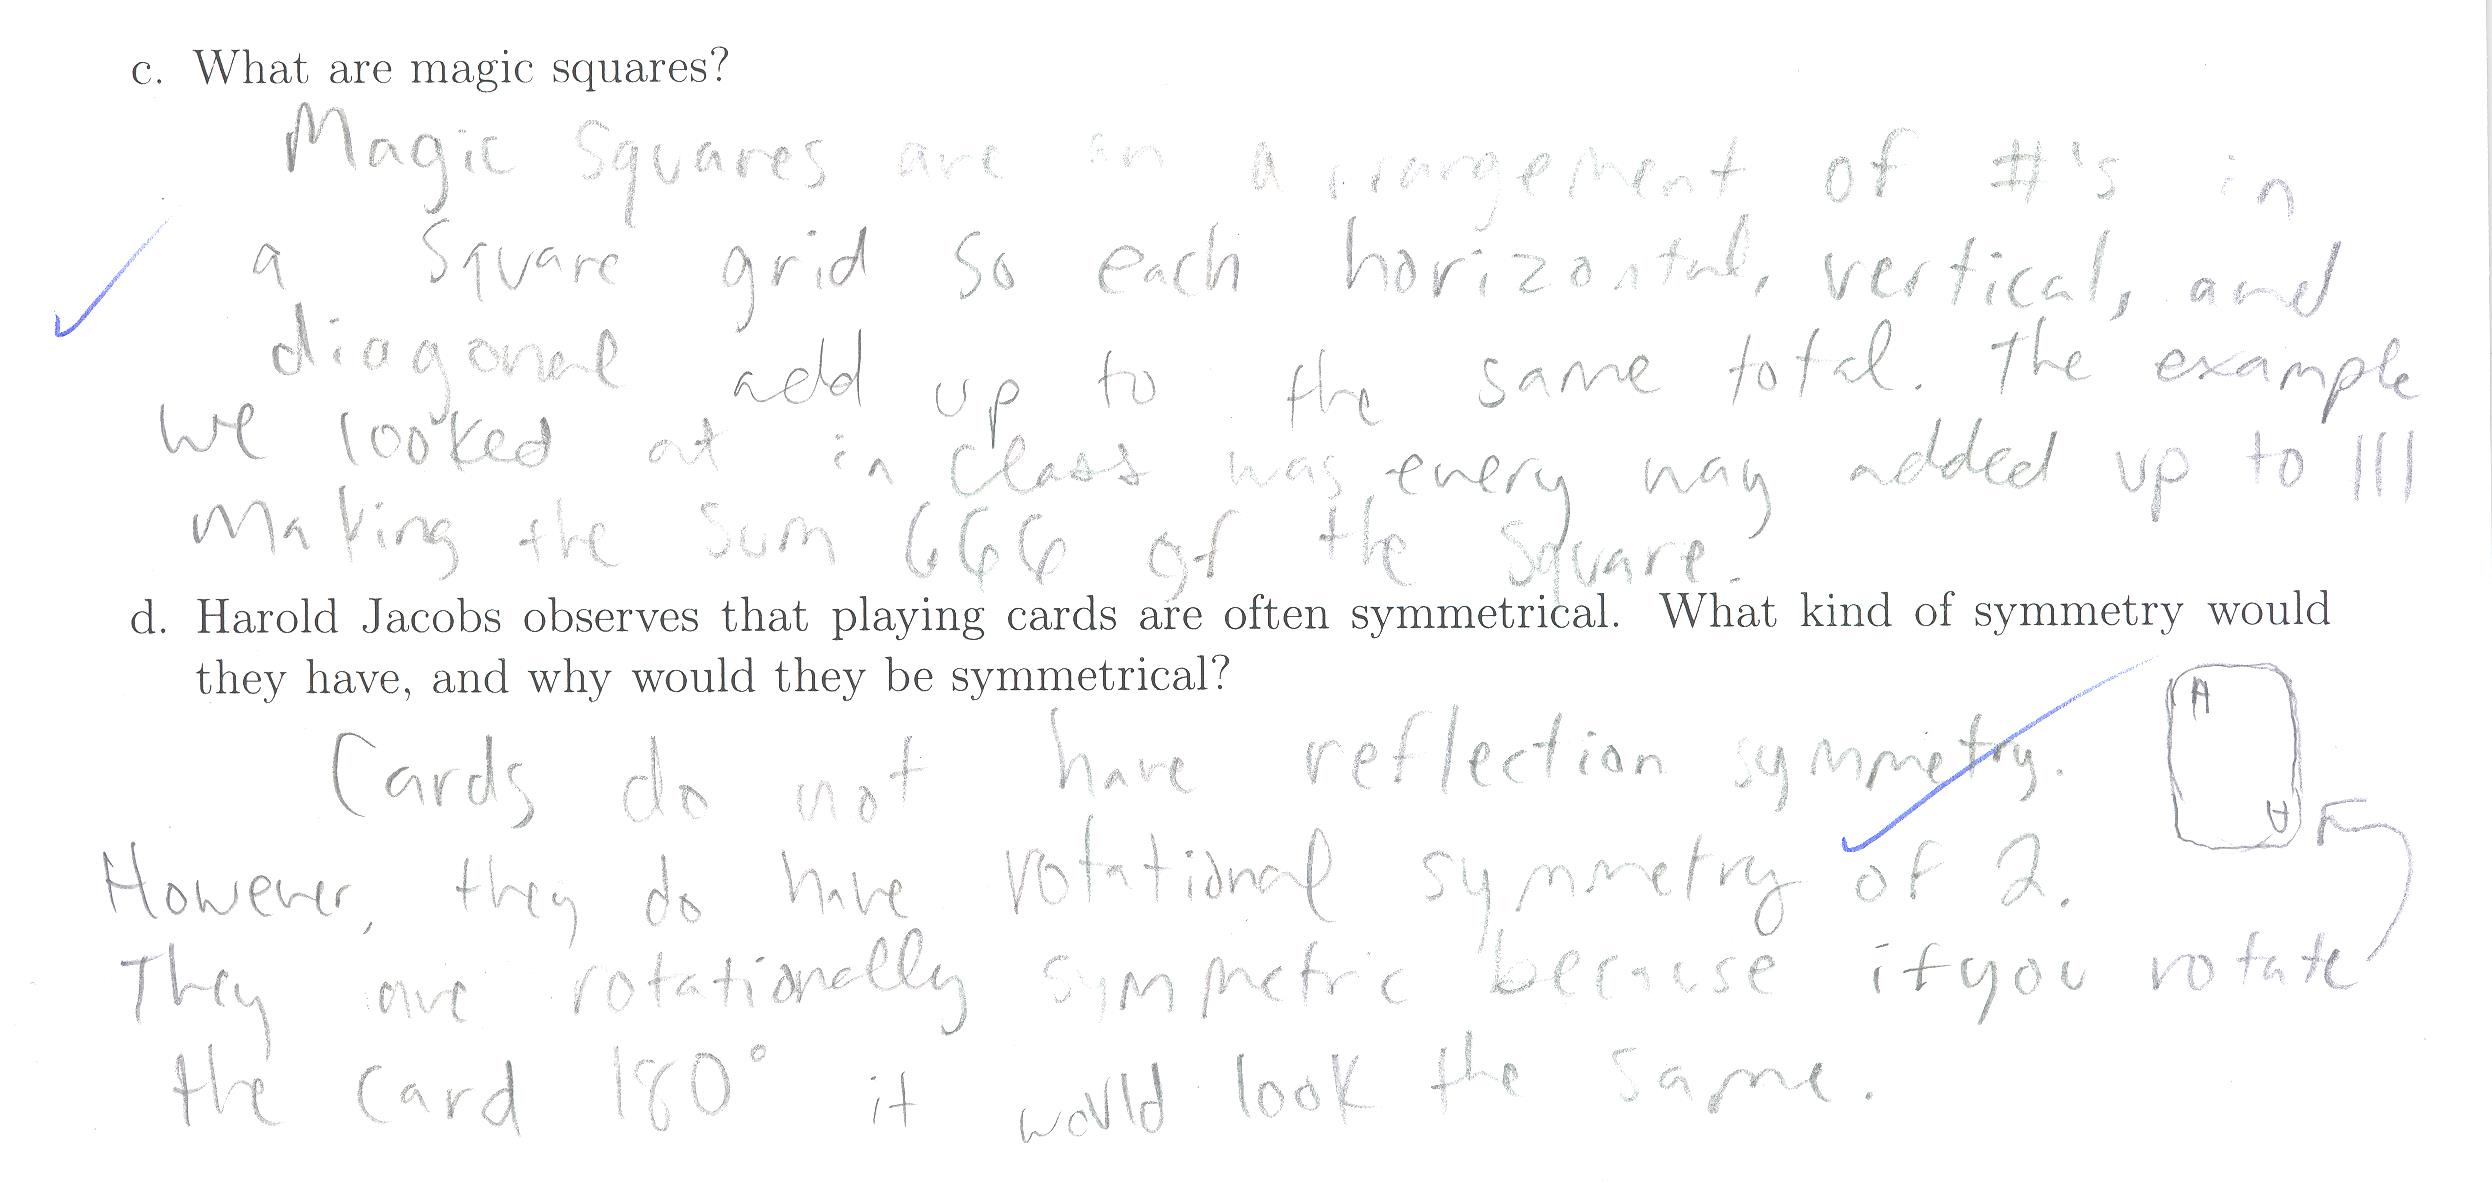 c. What are magic squares?
Magic Squares are an arrangement of #'s in
a Square grid so each horizontal, vertical, and
diagonal add up to the same total. The example
we looked at in class was every way added up to 111
Making the sum 666 of the square.
d. Harold Jacobs observes that playing cards are often symmetrical. What kind of symmetry would
they have, and why would they be symmetrical?
A
A
Cards do not have reflection symmetry.
However, they do have rotational symmetry of 2.
They are rotationally symmetric because if you rotate
the card 180° it would look the same.